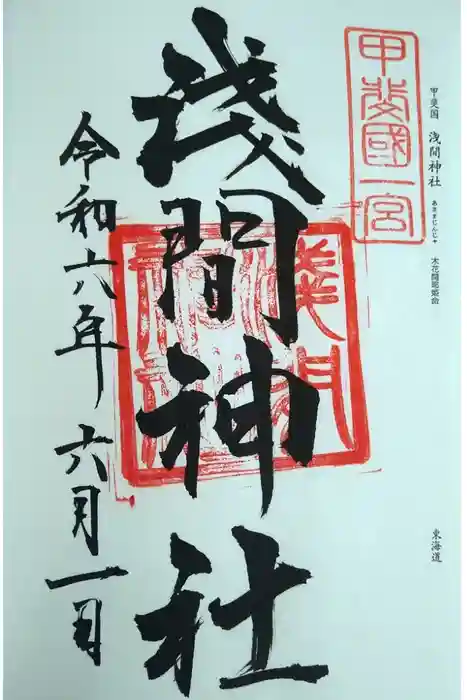 甲斐国 浅間神社 あさまじんじゃ 木花開耶姫命
東海道
甲斐國一宮
浅間神社
浅間神社
令和六年 六月一日